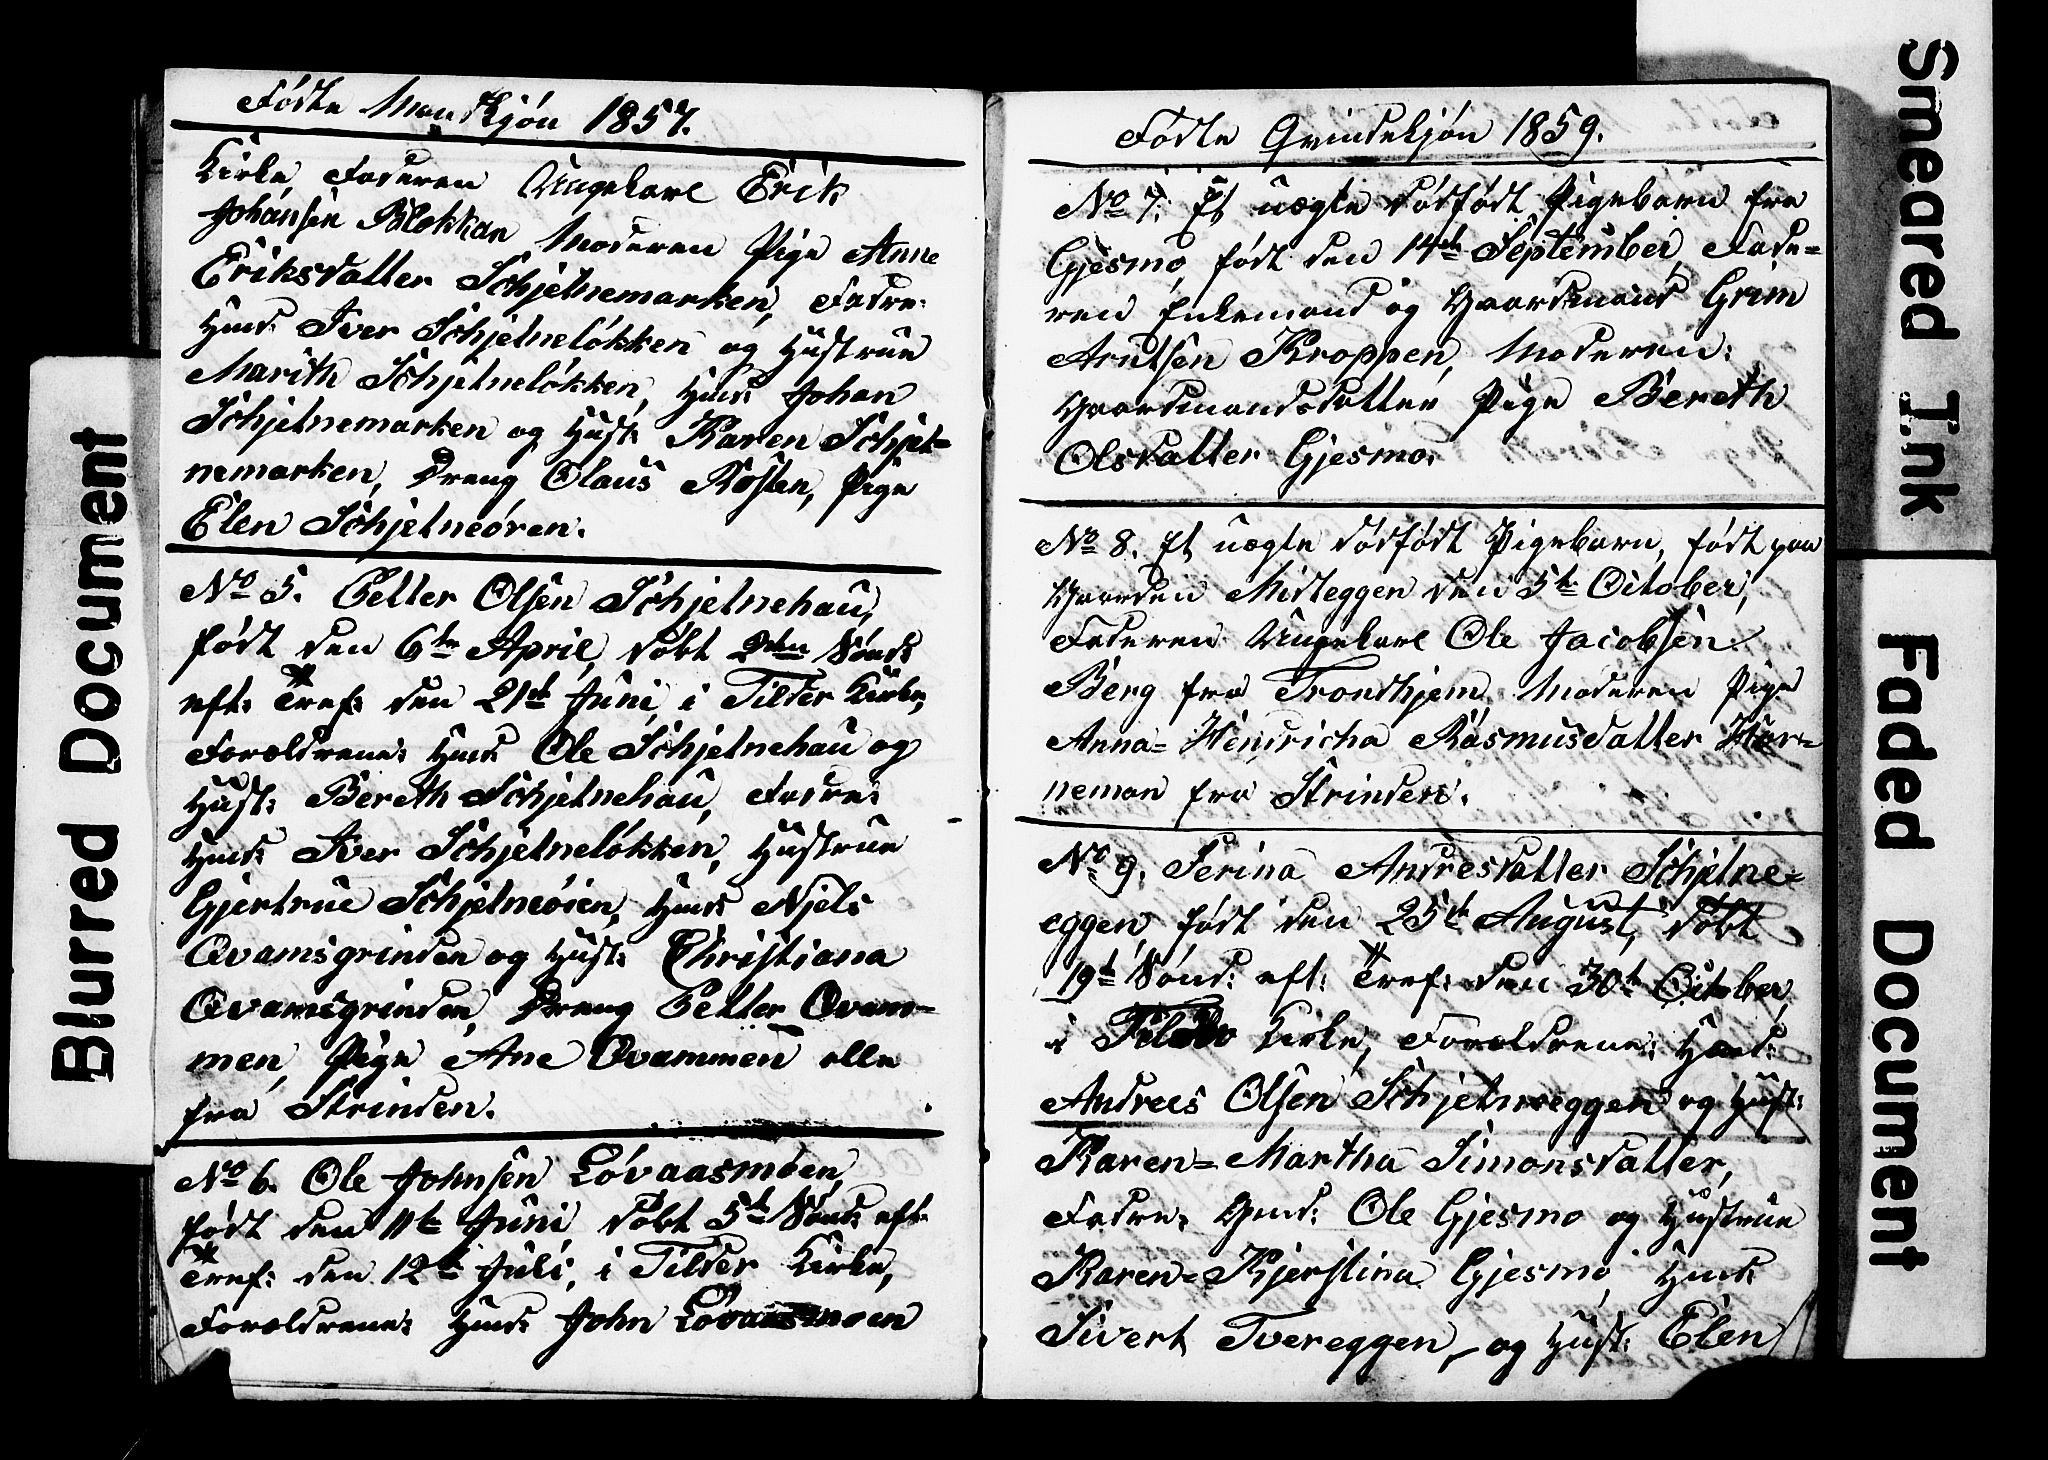 Fødte Mandkjøn 1857.
Kirke, Faderen Ungekarl Erik
Johansen Blekkan, Moderen Pige Anne
Eriksdatter Schjelnemarken, Fadre:
Hmd: Iver Schjelneløkken og Hustrue
Marith Schjelneløkken, Hmd: Johan
Schjelnemarken og Hust: Karen Schjel=
nemarken, Dreng Olaus Røsten, Pige
Elen Schjelneøren.
No 5. Petter Olsen Schjelnehau,
født den 6te April, døbt 2den Sønd:
eft: Tref: den 21de Juni, i Tilder Kirke,
Foreldrene: Hmd: Ole Schjelnehau og
Hust: Bereth Schjelnehau, Fadre:
Hmd: Iver Schjelneløkken, Hustrue
Gjertrue Schjelneøien, Hmd: Njels
Qvamsgrinden og Hust: Christiana
Qvamsgrinden, Dreng Petter Qvam=
men, Pige Ane Qvammen alle
fra Strinden.
No 6. Ole Johnsen Løvaasmoen,
født den 11te Juni, døbt 5te Sønd: eft:
Tref: den 12te Juli, i Tilder Kirke,
Foreldrene: Hmd: John Løvaasmoen
Fødte Qvindekjøn 1859.
No 7. Et uægte dødfødt Pigebarn fra
Gjesmo, født den 14de September, Fade=
ren Enkemand og Gaardmand Grim
Arntsen Kroppen, Moderen:
Gaardmandsdatter Pige Bereth
Olsdatter Gjesmo.
No 8. Et uægte dødfødt Pigebarn, født paa
Gaarden Midteggen den 5te October,
Faderen Ungekarl Ole Jacobsen
Berg fra Trondhjem, Moderen Pige
Anna= Hendricha Rasmusdatter Hor=
neman fra Strinden.
No 9. Serina Andresdatter Schjelne=
eggen, født den 25de August, døbt
19de Sønd: eft: Tref: den 30te October,
i Tilder Kirke, Foreldrene: Hmd:
Andrees Olsen Schjelneeggen og Hust:
Karen=Martha Simonsdatter,
Fadre: Gmd: Ole Gjesmo og Hustrue
Karen=Kjerstina Gjesmo, Hmd:
Sivert Tvereggen, og Hust: Elen
Blurred Document
Smeared Ink
Faded Document